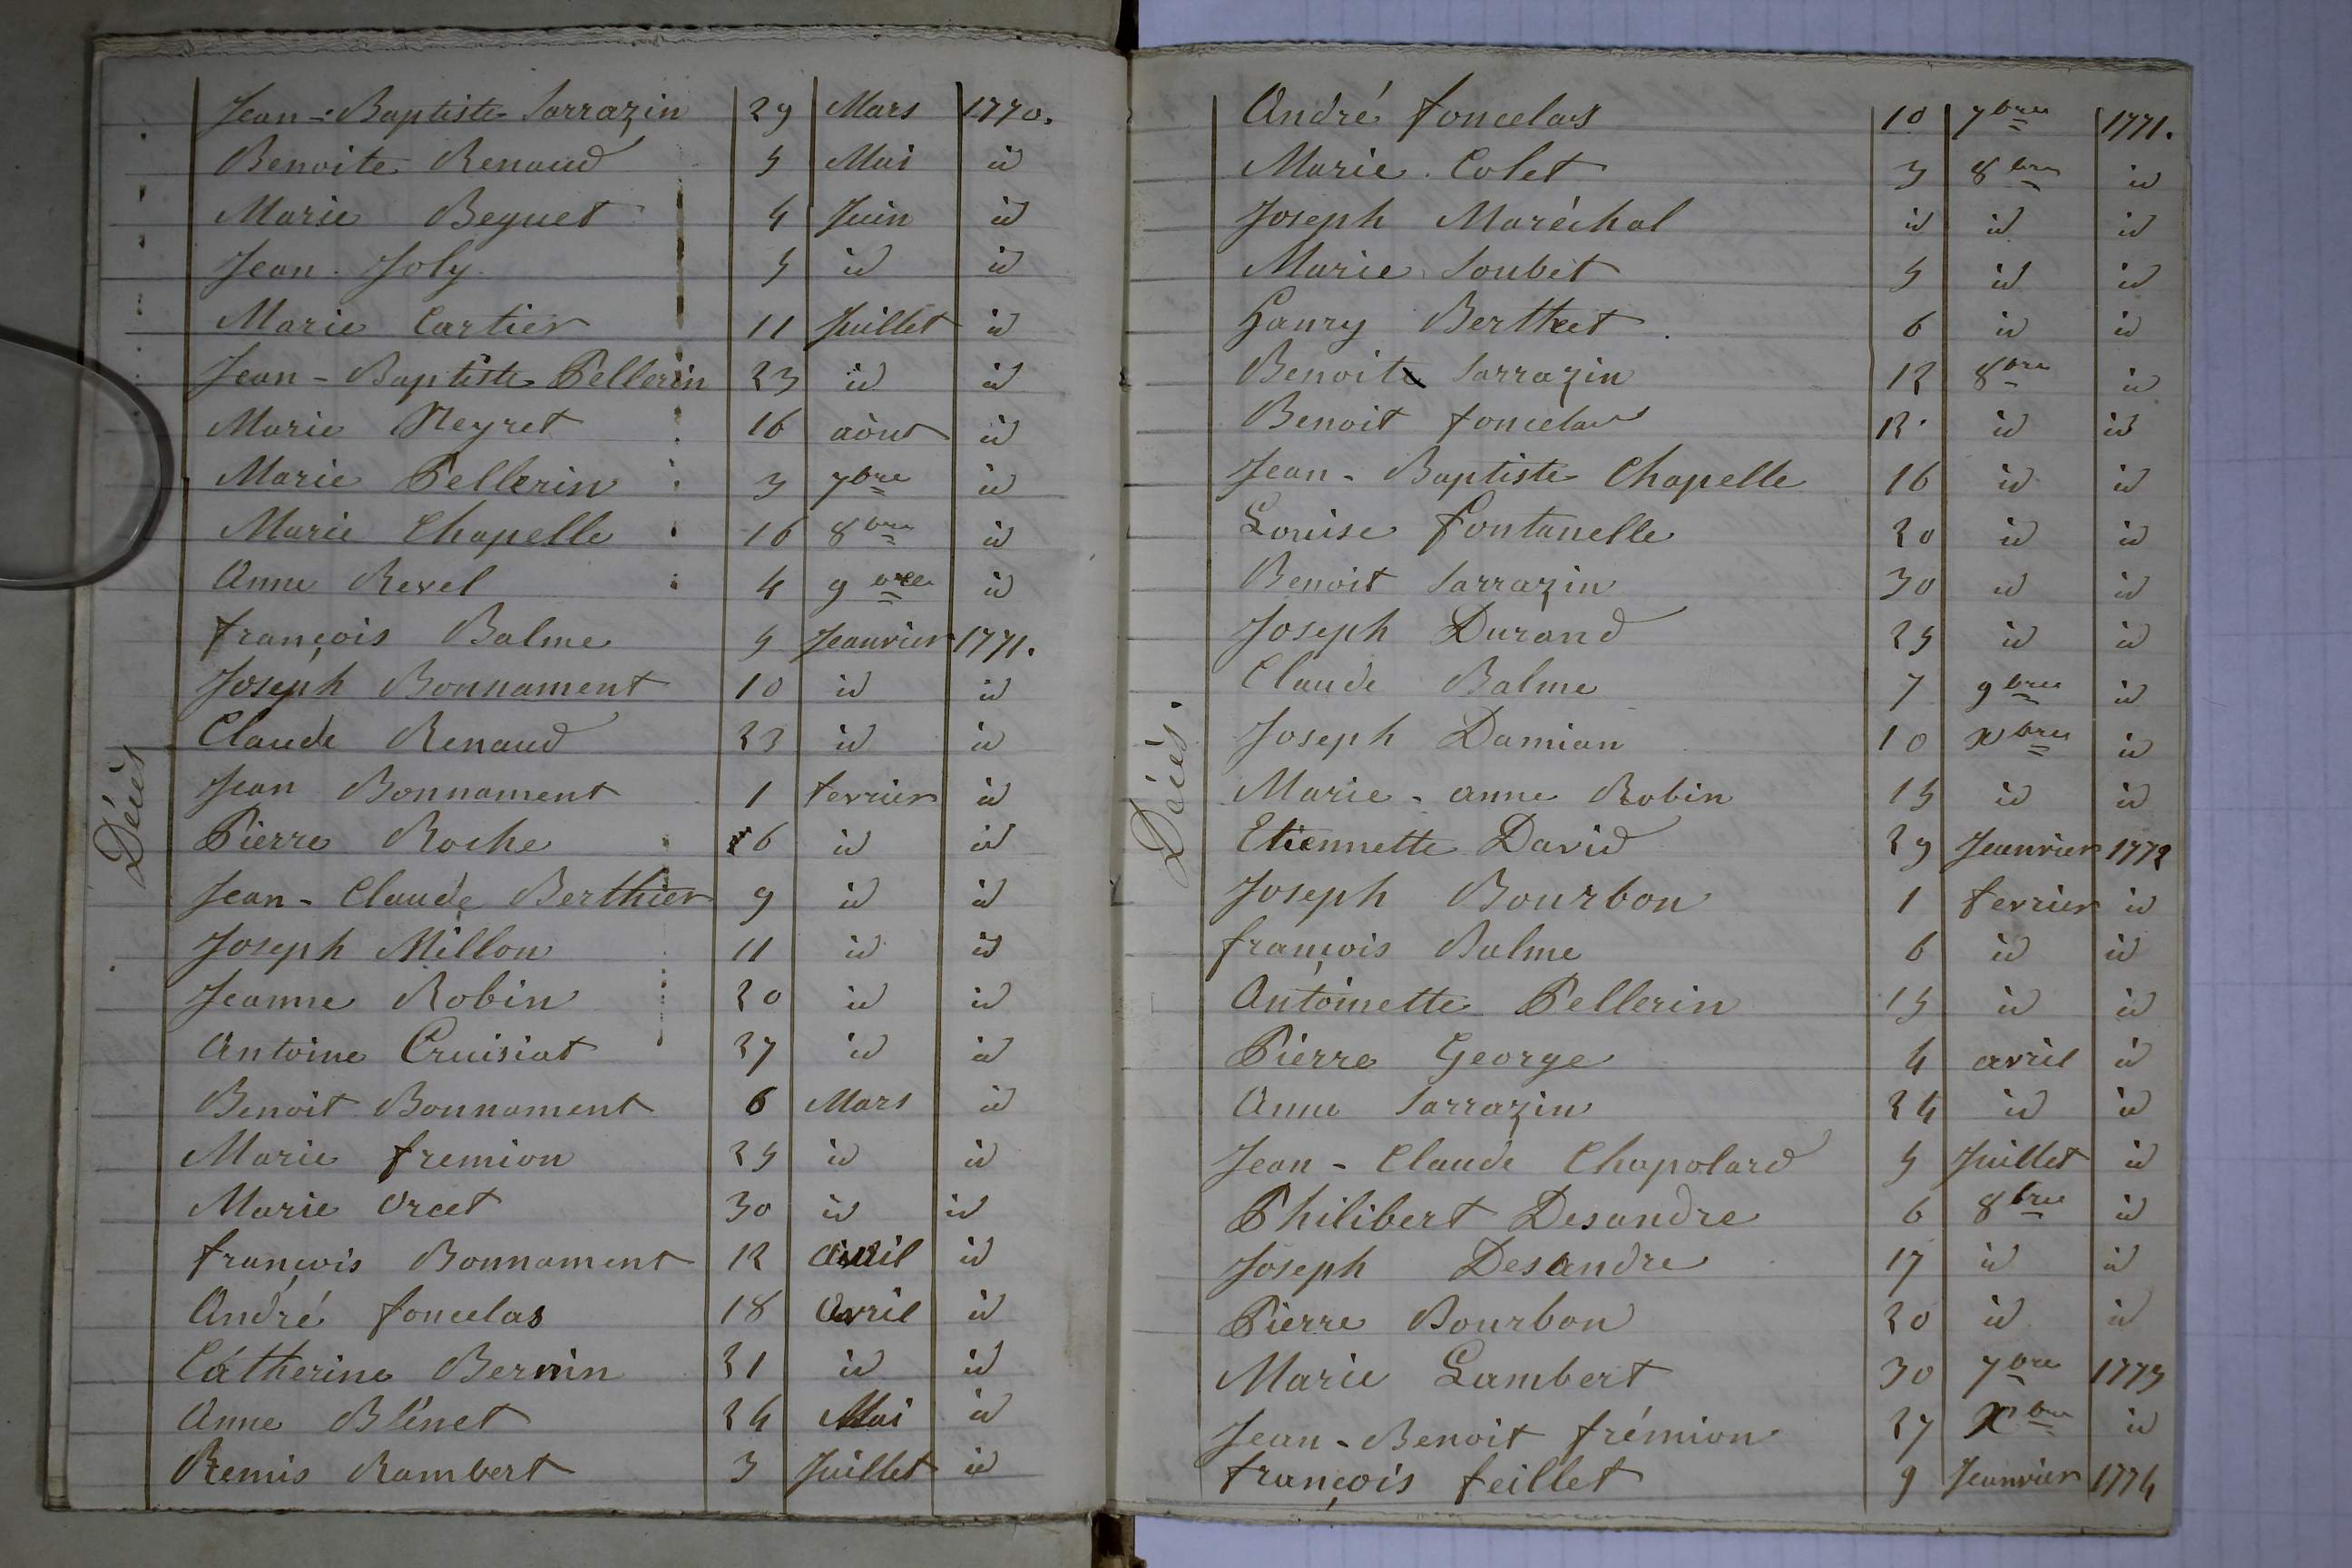 Jean-Baptiste Sarrazin 29 Mars 1770.
Benoite Renaud 5 Mai id
Marie Beguet 4 Juin id
Jean Joly 5 id id
Marie Cartier 11 Juillet id
Jean-Baptiste Pellerin 23 id id
Marie Neyret 16 août id
Marie Pellerin 3 7bre id
Marie Chapelle 16 8bre id
Anne Revel 4 9bre id
françois Balme 5 Jeanvier 1771.
Joseph Bonnament 10 id id
Claude Renaud 23 id id
Jean Bonnament 1 fevrier id
Pierre Roche 6 id id
Jean-Claude Berthier 9 id id
Joseph Millon 11 id id
Jeanne Robin 20 id id
Antoine Cruisiat 27 id id
Benoit Bonnament 6 Mars id
Marie fremion 25 id id
Marie Orcet 30 id id
françois Bonnament 12 Avril id
André foncelas 18 Avril id
Catherine Bernin 21 id id
Anne Blénet 24 Mai id
Remis Rambert 3 Juillet id
Décès
André foncelas 10 7bre 1771.
Marie Colet 3 8bre id
Joseph Maréchal id id id
Marie Soubet 5 id id
Ganry Berthet 6 id id
Benoite Sarrazin 12 8bre id
Benoit foncelas 12 id id
Jean-Baptiste Chapelle 16 id id
Louise fontanelle 20 id id
Benoit Sarrazin 30 id id
Joseph Durand 25 id id
Claude Balme 7 9bre id
Joseph Damian 10 xbre id
Marie-anne Robin 15 id id
Etiennette David 29 Jeanvier 1772
Joseph Bourbon 1 fevrier id
françois Balme 6 id id
Antoinette Pellerin 15 id id
Pierre George 4 avril id
Anne Sarrazin 24 id id
Jean-Claude Chapolard 5 Juillet id
Philibert Desandre 6 8bre id
Joseph Desandre 17 id id
Pierre Bourbon 20 id id
Marie Lambert 30 7bre 1773
Jean-Benoit frémion 27 Xbre id
françois feillet 9 Jeanvier 1774
Décès.